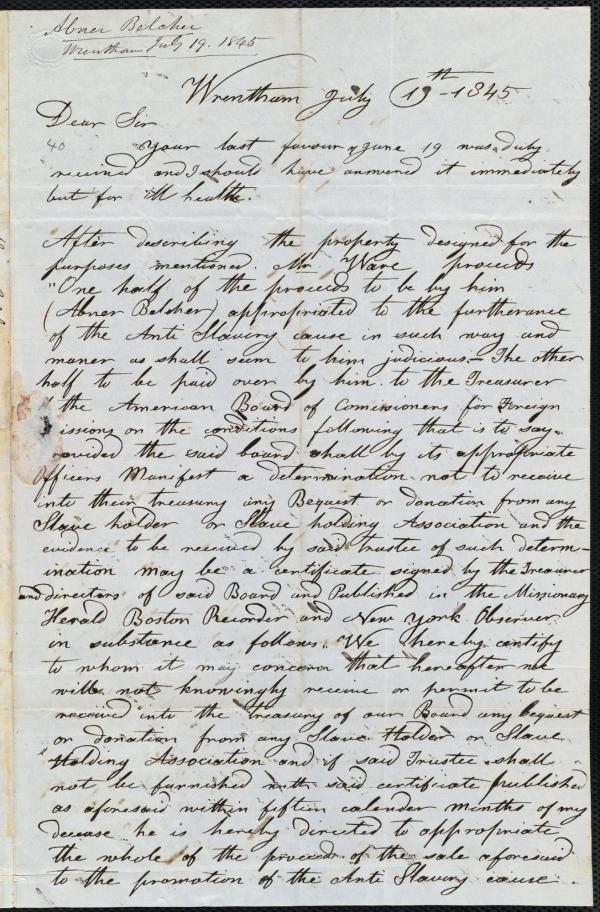 Abner Belcher
Wrentham July 19. 1845
Wrentham July 19th - 1845
Dear Sir
40
Your last favour of June 19 was duly
received and I should have answered it immediately
but for ill health.
After describing the property designed for the
purposes mentioned. Mr Ware proceeds
"One half of the proceeds to be by him
(Abner Belcher) appropriated to the furtherance
of the Anti Slavery cause in such way and
maner as shall seem to him judicious - The other
half to be paid over by him to the Treasurer
the American Board of Comissioners for Foreign
issions on the conditions following that is to say.
rovided the said board shall by its appropriate
Officers Manifest a determination not to receive
into their treasury any Bequest or donation from any
Slave holder or Slave holding Association and the
evidence to be received by said trustee of such determ-
ination may be a certificate signed by the Treasurer
and directors of said Board and Published in the Missionary
Herald Boston Recorder and New York Observer
in substance as follows. "We hereby certify
to whom it may concern that hereafter we
will not knowingly receive or permit to be
received into the treasury of our Board any bequest
or donation from any Slave Holder or Slave
Holding Association and if said Trustee shall
not be furnished with said certificate published
as aforesaid within fifteen calender months of my
decease he is hereby directed to appropriate
the whole of the proceeds of the sale aforesaid
to the promotion of the Anti Slavery cause.